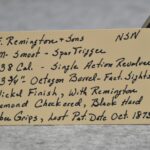 E. Remington & Sons NSN
Mr. Smoot - Spur Trigger
38 Cal. - Single Action Revolver
3¾" Octagon Barrel - Fact. Sights
Nickel Finish, With Remington
Diamond Checkered, Black Hard
Grips, Last Pat Date Oct 1873